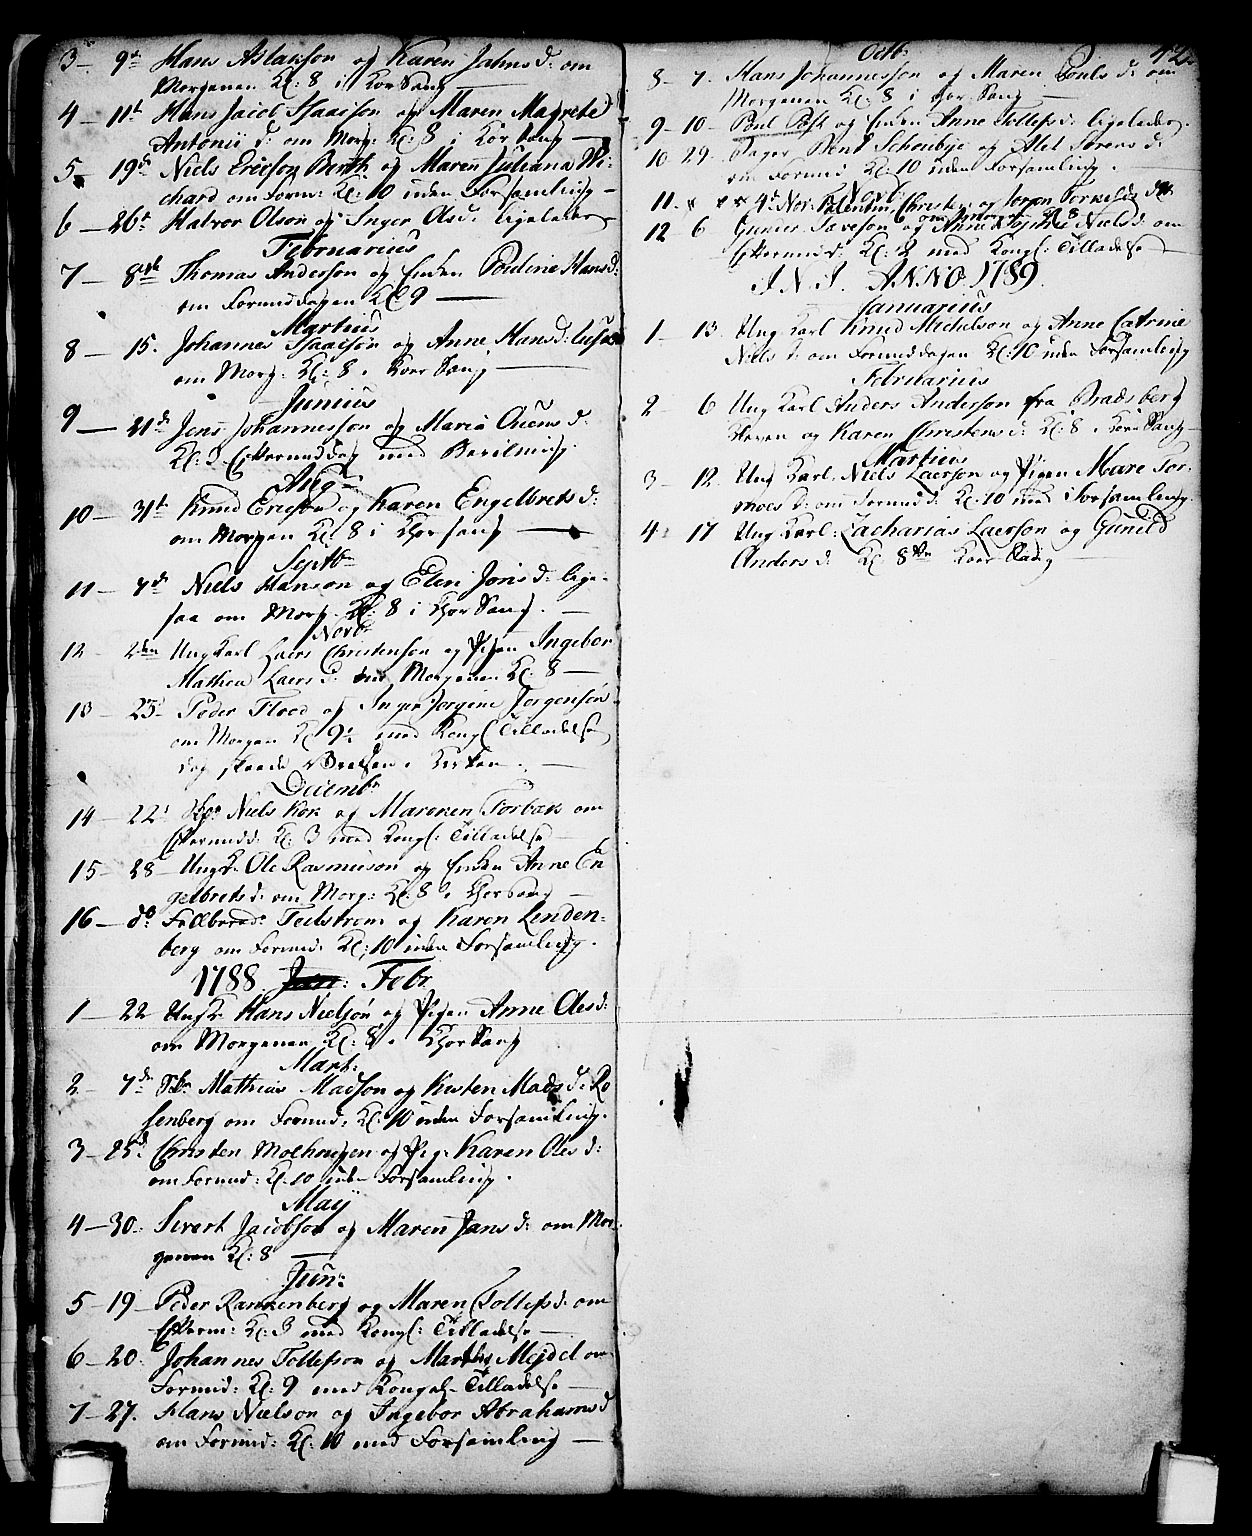 3 — 9de Hans Aslakson og Karen Jahns d: om
Morgenen Kl: 8 i Kor Sang —
4 — 11te Hans Jacob Isaacson og Maren Magrete
Antonii d: om Morg: Kl: 8 i Kor Sang —
5 — 19de Niels Ericson Berth og Maren Juliana Ri-
chard om Form: Kl: 10 uden Forsamling —
6 — 26te Halvor Olson og Inger Olsd: ligeledes
Februarius
7 — 8de Thomas Anderson og Enken Pouline Hans d:
om Formiddagen Kl: 9 —
Martius
8 — 15. Johannes Isaacson og Anne Hans d:
om Morg: Kl: 8 i Koer Sang —
Junius
9 — 21de Jens Johannesson og Maria Ouens d:
Kl: 3 Eftermiddag med
Aug
10 — 31te Knud Ericson og Karen Engelbrets d:
om Morgen Kl: 8 i Chorsang —
Septbr
11 — 7de Niels Hanson og Elen Joris d: lige-
saa om Morg. Kl: 8 i Chor Sang. —
Novbr
12 — 2den Ung Karl Laers Christenson og Pigen Ingebor
Mathea Laers d: om Morgenen Kl: 8 —
13 — 23de Peder Flood og Inger Jorgine Jorgenson
om Morgen Kl 9½ med Kongl Tilladelse
dog skeede Vielsen i Kirken. —
Decembr
14 — 22de Niels Kok og Mareken Torbak om
Eftermidd: Kl: 3 med Kongl: Tilladelse —
15 — 28 Ungk. Ole Rasmuson og Enken Anne En
gelbrets d: om Morg: Kl: 8 i Chor Sang —
16 — do Teilstrøm og Karen Lenden-
berg om Formid: Kl: 10 uden Forsamling.
1788. Jan: Febr
1 — 22 Ungk. Hans Nielson og Pigen Anne Oles d:
om Morgenen Kl: 8 i Chor Sang
Mart:
2 — 7de Mathias Madson og Kisten Mads d: Ro
senberg om Formid: Kl: 10 uden Forsamling.
3 — 25de Christen Molhougen og Pig: Karen Oles d:
om Formid: Kl: 10 uden Forsamling.
Maij
4 — 30. Sivert Jacobson og Maren Jans d: om Mor-
genen Kl: 8 —
Jun:
5 — 19 — Peder Rankenberg og Maren Tollefs d: om
Efterm: Kl: 3 med Kongl: Tilladelse —
6 — 20. Johannes Tollefson og Marthe Mejdel om
Formid: Kl: 9 med Kongel- Tilladelse —
7 — 27. Hans Nielson og Ingebor Abrahams d
om Formid: Kl: 10 med Forsamling —
42.
Octb
8 — 7. Hans Johannesson og Maren Pouls d: om
Morgenen Kl: 8 i Chor Sang —
9 — 10 — Poul Post og Enken Anne Tollefs d: ligeledes.
10 29 — Bent Schoubye og Alet Sørens d:
om Formid Kl: 10 uden Forsamling.
11. 4de Nov: Valentin Christ og Joran
om Kl: 8
Novbr
12 — 6 Gunder Taraldson og Anne Sophie Niels d: om
Eftermid: Kl: 2 med Kongl: Tilladelse —
I. N. I. ANNO. 1789.
Januarius
1 — 13. Ung Karl Knud Michelson og Anne Catrine
Niels d: om Formiddagen Kl: 10 uden Forsamling
Februarius
2 — 6 Ung Karl Anders Anderson fra Bradsberg
og Karen Christens d: Kl: 8 i Kor Sang —
Martius
3 — 12. Ung Karl Niels Laerson og Pigen Mare Tor-
moes d: om Formid: Kl: 10 med Forsamling.
4 — 17 Ung Karl: Zacharias Laerson og Gunild
Anders d: Kl 8 Koer Sang —